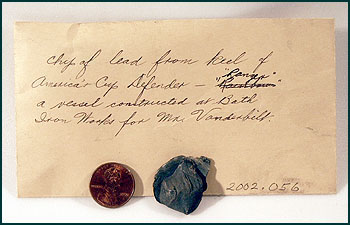 Chip of lead from keel of
"Ranger"
America's Cup Defender – "Rainbow"
a vessel constructed at Bath
Iron Works for Mr. Vanderbilt.
2002.056